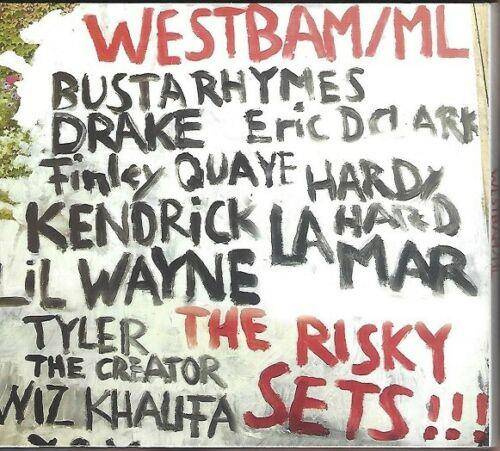 WESTBAM/ML
BUSTA RHYMES
DRAKE Eric D CLARK
Finley QUAYE HARDY HARD
KENDRicK LAMAR
LiL WAYNE
TYLER THE CREATOR
WIZ KHALIFA
THE RISKY SETS!!!